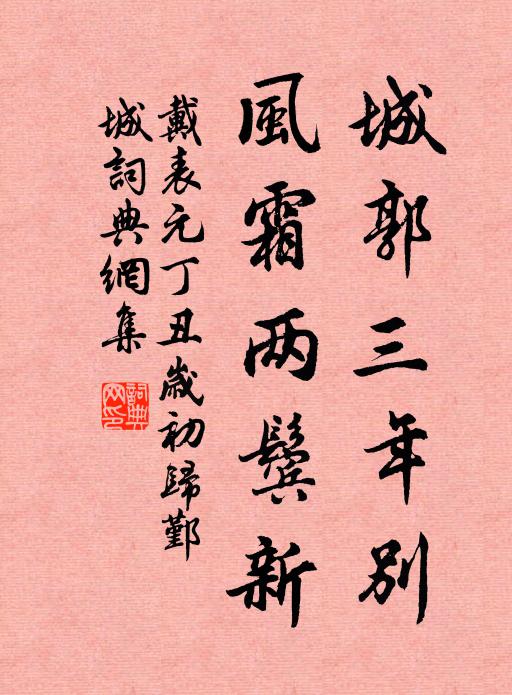 城郭三年別
風霜两鬓新
戴表元丁丑歲初歸鄞
城詞典網集
詞典
网印